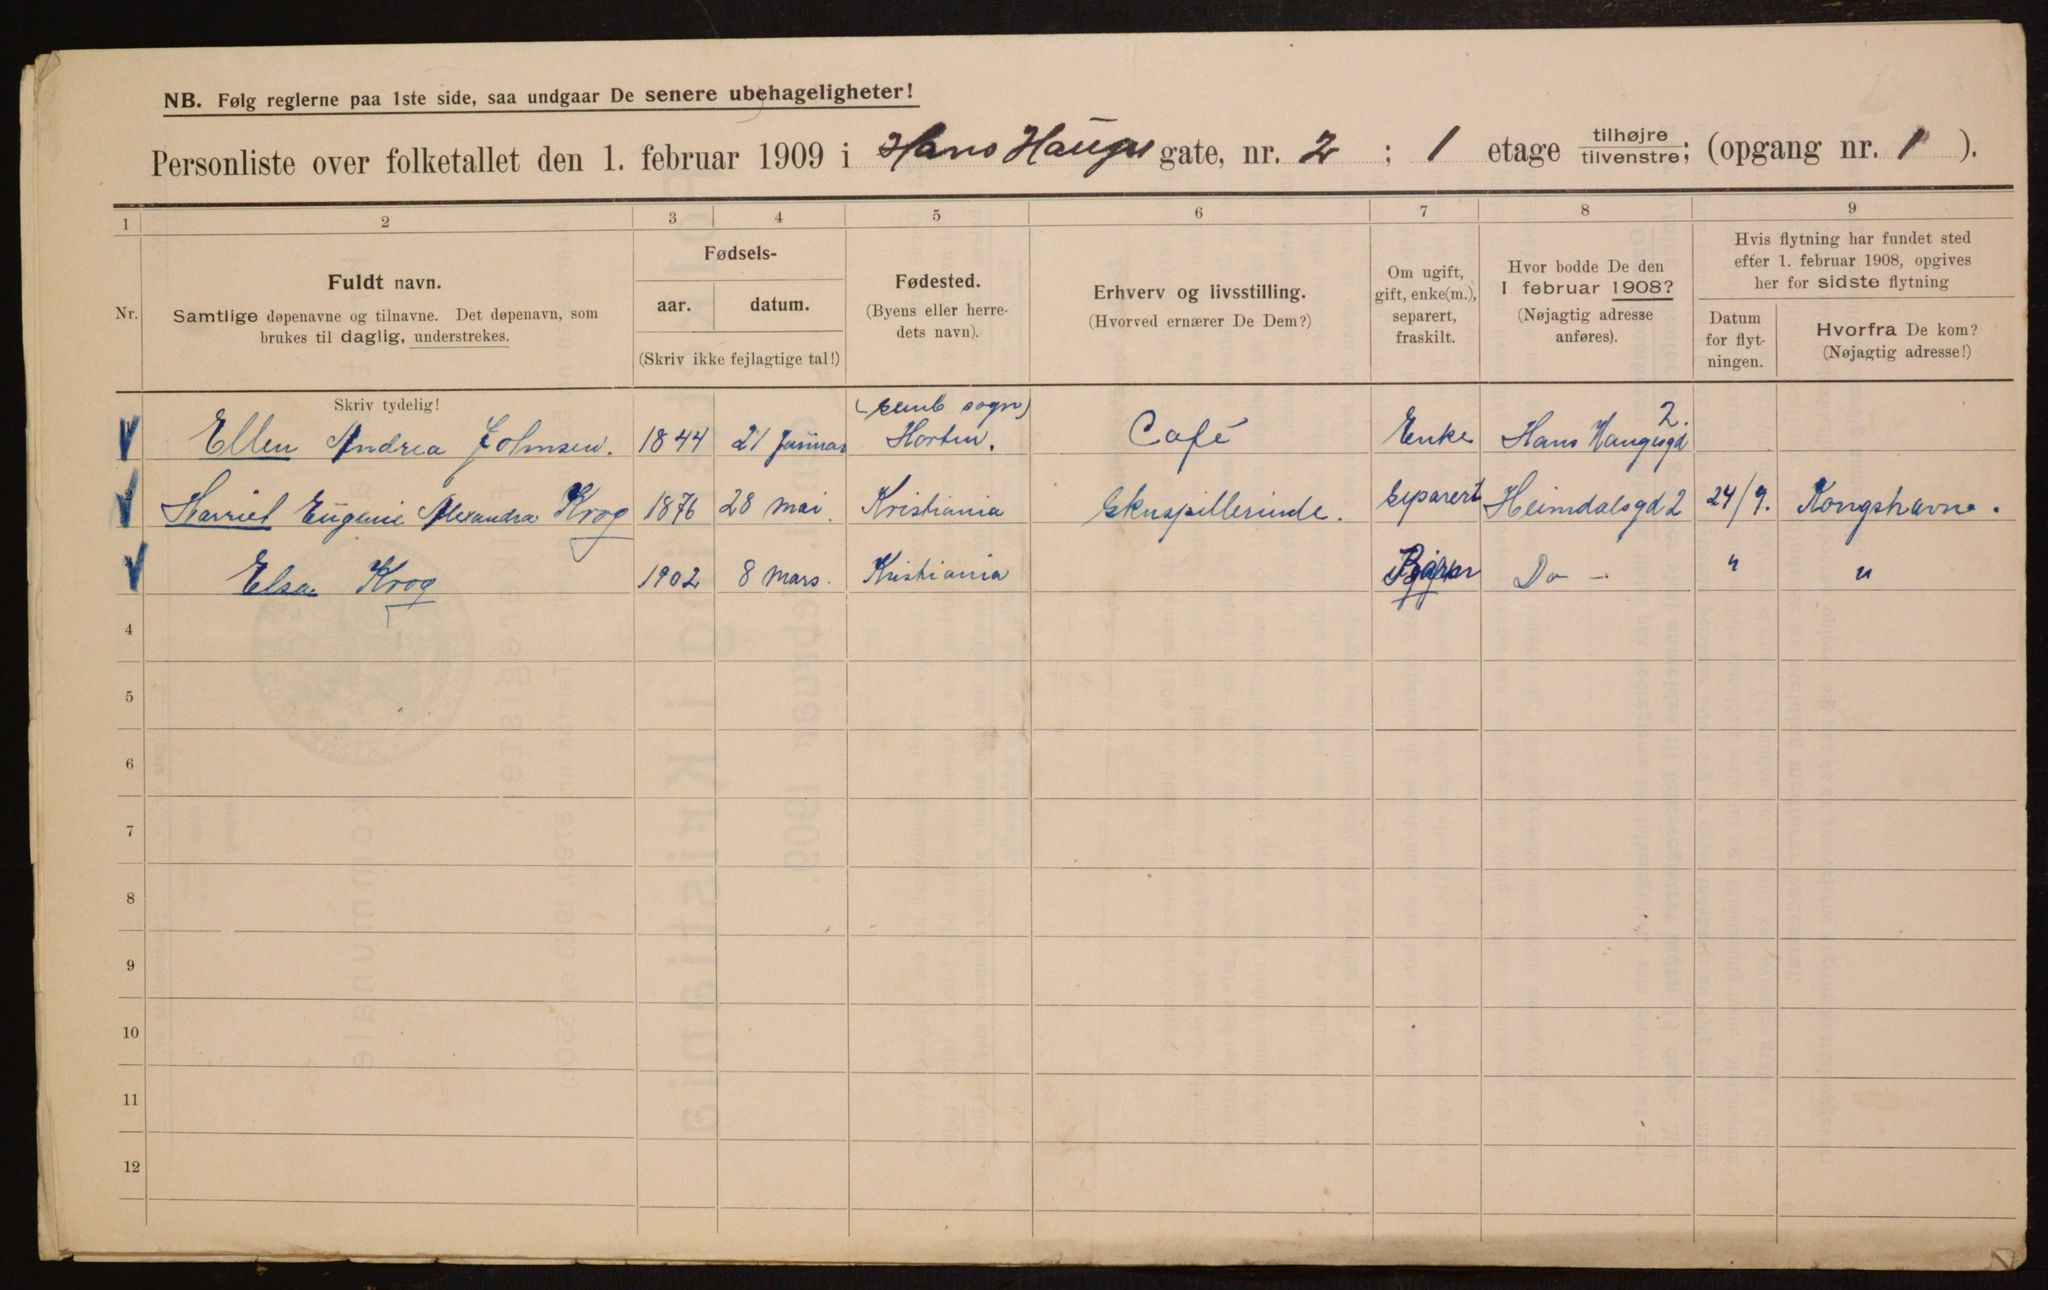 NB. Følg reglerne paa 1ste side, saa undgaar De senere ubehageligheter!
Personliste over folketallet den 1. februar 1909 i Hans Hauges gate, nr. 2 ; 1 etage tilhøjre/tilvenstre; (opgang nr. 1 ).
1 2 3 4 5 6 7 8 9
Nr.
Fuldt navn.
Samtlige døpenavne og tilnavne. Det døpenavn, som
brukes til daglig, understrekes.
Skriv tydelig!
Fødsels-
aar. datum.
(Skriv ikke fejlagtige tal!)
Fødested.
(Byens eller herre-
dets navn).
Erhverv og livsstilling.
(Hvorved ernærer De Dem?)
Om ugift,
gift, enke(m.),
separert,
fraskilt.
Hvor bodde De den
1 februar 1908?
(Nøjagtig adresse
anføres).
Hvis flytning har fundet sted
efter 1. februar 1908, opgives
her for sidste flytning
Datum
for flyt-
ningen.
Hvorfra De kom?
(Nøjagtig adresse!)
(semb sogn) 2.
Ellen Andrea Johnsen. 1844 21 Horten. Café Enke Hans Haugesgd
Harriet Eugenie Alexandra Krog 1876 28 mai. Kristiania Skuspillerinde. Separert Heimdalsgd 2 24/9. Kongshavn.
Elsa Krog 1902 8 mars. Kristiania Do - " "
4
5
6
7
8
9
10
11
12